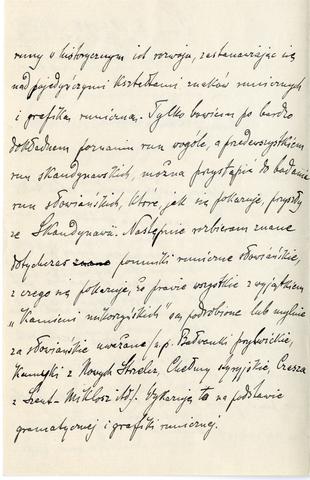 runy w historycznym ich rozwoju, zastanawiając się
nad pojedyńczymi kształtami znaków runicznych
i grafiką runiczną. Tylko bowiem po bardzo
dokładnem poznaniu run wogóle, a przedewszystkiem
run skandynawskich, można przystąpić do badania
run słowiańskich, które, jak się pokazuje, przyszły
ze Skandynawii. Następnie rozbieram znane
dotychczas znane pomniki runiczne słowiańskie,
z czego się pokazuje, że prawie wszystkie z wyjątkiem
"Kamieni mikorzyńskich" są podrobione lub mylnie
za słowiańskie uważane /:n.p. Bałwanki prylwickie,
Kamyki z Nowych Strelec, Chełmy styryjskie, Czasza
z Szent-Miklosz itd./. Wykazuję to na podstawie
gramatycznej i grafiki runicznej.